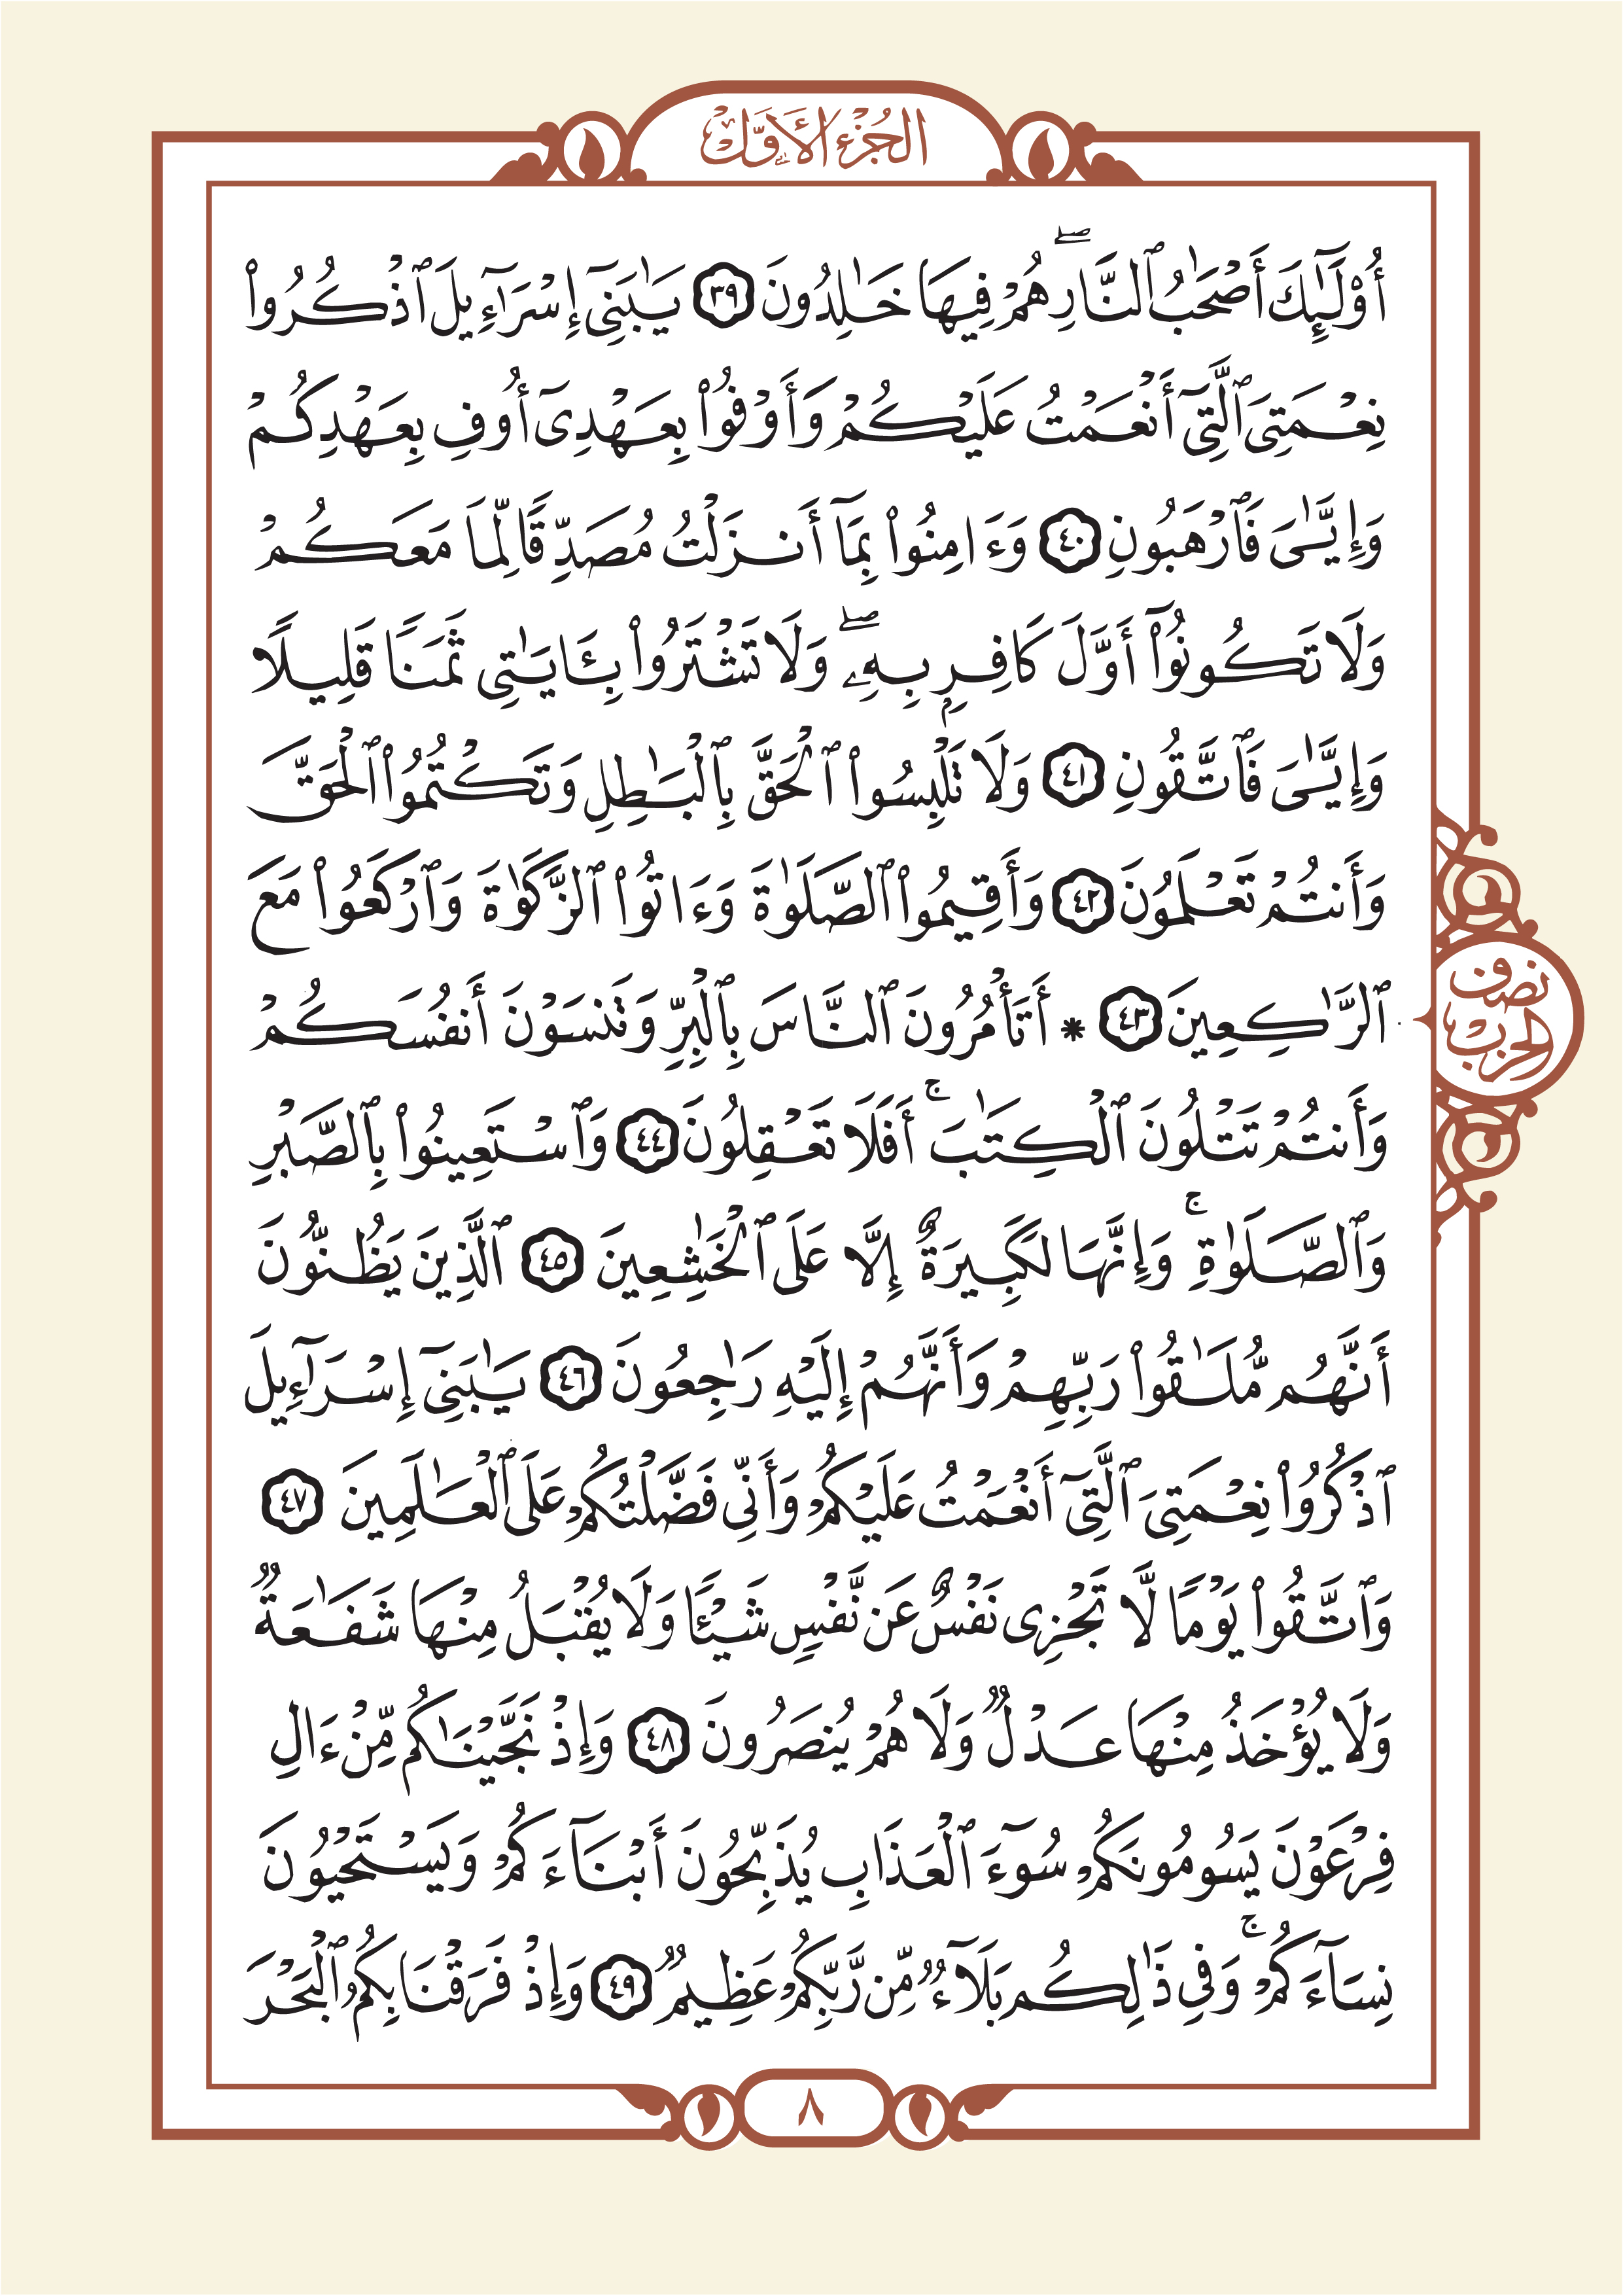 الجُزْءُ الأَوَّلُ
أُوْلَـٰٓئِكَ أَصْحَـٰبُ ٱلنَّارِ ۖ هُمْ فِيهَا خَـٰلِدُونَ ٣٩ يَـٰبَنِىٓ إِسْرَٰٓءِيلَ ٱذْكُرُوا۟
نِعْمَتِىَ ٱلَّتِىٓ أَنْعَمْتُ عَلَيْكُمْ وَأَوْفُوا۟ بِعَهْدِىٓ أُوفِ بِعَهْدِكُمْ
وَإِيَّـٰىَ فَٱرْهَبُونِ ٤٠ وَءَامِنُوا۟ بِمَآ أَنزَلْتُ مُصَدِّقًا لِّمَا مَعَكُمْ
وَلَا تَكُونُوٓا۟ أَوَّلَ كَافِرٍۭ بِهِۦ ۖ وَلَا تَشْتَرُوا۟ بِـَٔايَـٰتِى ثَمَنًا قَلِيلًا
وَإِيَّـٰىَ فَٱتَّقُونِ ٤١ وَلَا تَلْبِسُوا۟ ٱلْحَقَّ بِٱلْبَـٰطِلِ وَتَكْتُمُوا۟ ٱلْحَقَّ
وَأَنتُمْ تَعْلَمُونَ ٤٢ وَأَقِيمُوا۟ ٱلصَّلَوٰةَ وَءَاتُوا۟ ٱلزَّكَوٰةَ وَٱرْكَعُوا۟ مَعَ
ٱلرَّٰكِعِينَ ٤٣ * أَتَأْمُرُونَ ٱلنَّاسَ بِٱلْبِرِّ وَتَنسَوْنَ أَنفُسَكُمْ
نصف
الحزب
وَأَنتُمْ تَتْلُونَ ٱلْكِتَـٰبَ ۚ أَفَلَا تَعْقِلُونَ ٤٤ وَٱسْتَعِينُوا۟ بِٱلصَّبْرِ
وَٱلصَّلَوٰةِ ۚ وَإِنَّهَا لَكَبِيرَةٌ إِلَّا عَلَى ٱلْخَـٰشِعِينَ ٤٥ ٱلَّذِينَ يَظُنُّونَ
أَنَّهُم مُّلَـٰقُوا۟ رَبِّهِمْ وَأَنَّهُمْ إِلَيْهِ رَٰجِعُونَ ٤٦ يَـٰبَنِىٓ إِسْرَٰٓءِيلَ
ٱذْكُرُوا۟ نِعْمَتِىَ ٱلَّتِىٓ أَنْعَمْتُ عَلَيْكُمْ وَأَنِّى فَضَّلْتُكُمْ عَلَى ٱلْعَـٰلَمِينَ ٤٧
وَٱتَّقُوا۟ يَوْمًا لَّا تَجْزِى نَفْسٌ عَن نَّفْسٍ شَيْـًٔا وَلَا يُقْبَلُ مِنْهَا شَفَـٰعَةٌ
وَلَا يُؤْخَذُ مِنْهَا عَدْلٌ وَلَا هُمْ يُنصَرُونَ ٤٨ وَإِذْ نَجَّيْنَـٰكُم مِّنْ ءَالِ
فِرْعَوْنَ يَسُومُونَكُمْ سُوٓءَ ٱلْعَذَابِ يُذَبِّحُونَ أَبْنَآءَكُمْ وَيَسْتَحْيُونَ
نِسَآءَكُمْ ۚ وَفِى ذَٰلِكُم بَلَآءٌ مِّن رَّبِّكُمْ عَظِيمٌ ٤٩ وَإِذْ فَرَقْنَا بِكُمُ ٱلْبَحْرَ
٨